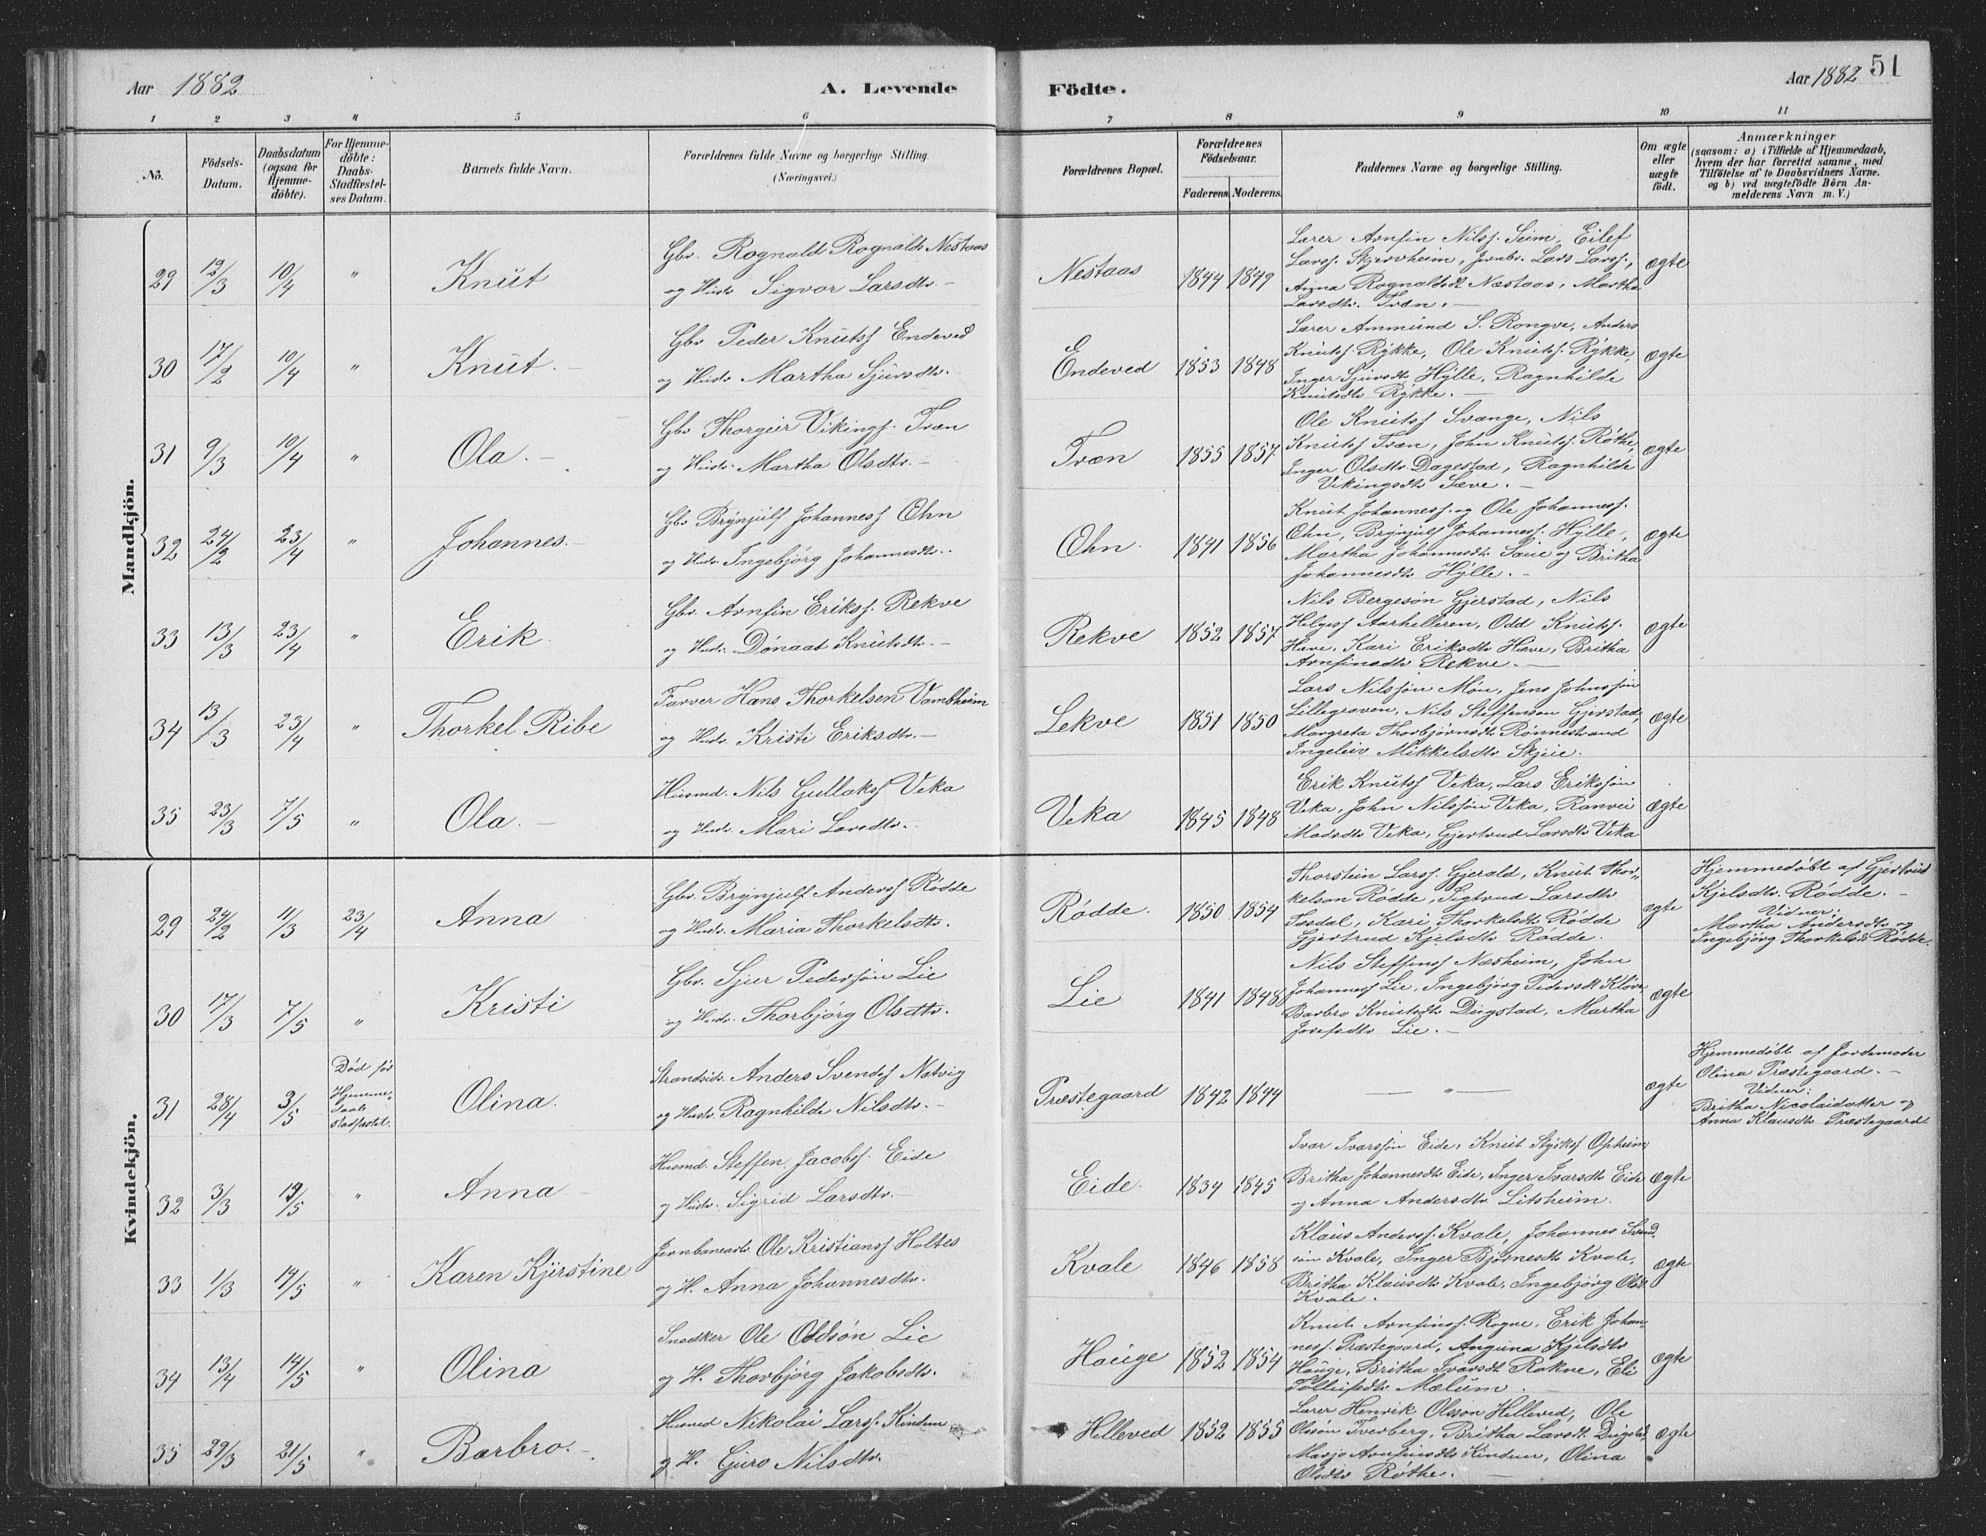 Aar 1882
A. Levende
Födte.
Aar 1882 51
1 2 3 4 5 6 7 8 9 10 11
No.
Födsels-
Datum.
Daabsdatum
(ogsaa for
Hjemme-
döbte).
For Hjemme-
döbte:
Daabs-
Stadfæstel-
ses Datum.
Barnets fulde Navn.
Forældrenes fulde Navne og borgerlige Stilling.
(Næringsvei.)
Forældrenes Bopæl.
Forældrenes
Födselsaar.
Faderens. Moderens.
Faddernes Navne og borgerlige Stilling.
Om ægte
eller
uægte
født.
Anmærkninger
(saasom: a) i Tilfælde af Hjemmedaab,
hvem der har forrettet samme, med
Tilföielse af to Daabsvidners Navne.
og b) ved uægtefödte Börn An-
melderens Navn m. V.)
Mandkjön.
29 12/3 10/4 " Knut
Gbr. Rognald Rognalds Nestaas
og Hustr. Sigvor Larsdtr. –
Nestaas 1844 1849
Lærer Arnfin Nilss. Seim, Eilef
Larss. Skjervheim, Jernbr. Lars Larss.,
Anna Rognaldsdt Næstaas, Martha
Larsdtr. Træn. –
ægte
30 17/2 10/4 " Knut. –
Gbr Peder Knutss Endeved
og Hustr Martha Sjursdtr. –
Endeved 1853 1848
Lærer Ammund S. Rongve, Anders
Knutss. Rykke, Ole Knutss. Rykke,
Inger Sjursdt Hylle, Ragnhilde
Knutsdtr Rykke. –
ægte
31 9/3 10/4 " Ola. –
Gbr Thorgeir Vikingss. Træn
og Hustr. Martha Olsdtr. –
Træn 1855 1857
Ole Knutss Svange, Nils
Knutss Træn, John Knutss. Røthe,
Inger Olsdtr Dagestad, Ragnhilde
Vikingsdtr Sæve. –
ægte
32 24/2 23/4 " Johannes. –
Gbr Brynjulf Johanness Øhn
og Hustr Ingebjørg Johannesdtr.
Øhn. 1841 1856
Knut Johanness. og Ole Johanness.
Øhn, Brynjulf Johanness. Hylle,
Martha Johannesdt Saue og Britha
Johannesdtr Hylle. –
ægte
33 13/3 23/4 " Erik.
Gbr. Arnfin Erikss. Rekve
og Hustr. Dønaat Knutsdtr. –
Rekve 1852 1857
Nils Bergesøn Gjerstad, Nils
Helgess Aarhelleren, Odd Knutss.
Have, Kari Eriksdtr Have, Britha
Arnfinsdtr Rekve. –
ægte
34 13/3 23/4 " Thorkel Ribe
Farver Hans Thorkelsen Vambheim
og Hustr. Kristi Eriksdtr. –
Lekve 1851 1850
Lars Nilssøn Møn, Jens Johnssøn
Lillegraven, Nils Steffensen Gjerstad,
Margreta Thorbjørnsdt Rønnestrand
Ingeleiv Mikkelsdtr Skjeie.
ægte
35 23/3 7/5 " Ola. –
Husmd. Nils Gullakss Veka
og Hustr. Mari Larsdtr.
Veka 1845 1848
Erik Knutss Veka, Lars Erikssøn
Veka, John Nilssøn Veka, Ranvei
Madsdtr Veka, Gjertrud Larsdtr Veka
ægte
Kvindekjön.
29 24/2 11/3 23/4 Anna
Gbr Brynjulf Anderss Rødde
og Hustr. Maria Thorkelsdtr.
Rødde. 1850 1854
Thorstein Larss. Gjerald, Knut Thor-
kelson Rødde, Sigtrud Larsdtr
Tasdal, Kari Thorkelsdtr Rødde
Gjertrud Kjelsdtr Rødde.
ægte
Hjemmedøbt af Gjertrud
Kjelsdtr. Rødde. –
Vidner:
Martha Andersdtr og
Ingebjørg Thorkelsdt Rødde.
30 17/3 7/5 " Kristi
Gbr. Sjur Pedersøn Lie
og Hustr. Thorbjørg Olsdtr.
Lie 1841 1848
Nils Steffenss Næsheim, John
Johanness Lie, Ingebjørg Pedersdt Kløve
Barbro Knutsdt Dugstad, Martha
Josefsdtr Lie. –
ægte
31 28/4 3/5
Død før
Hjemme-
daab
stadfæstet.
Olina.
Strandsidr. Anders Svendss Natvig
og Hustr. Ragnhilde Nilsdtr. –
Præstegaard 1842 1844 — " —
ægte
Hjemmedøbt af Jordemoder
Olina Præstegaard. –
Vidner:
Britha Nicolaidatter og
Anna Klausdtr Præstegaard.
32 3/3 19/5 " Anna
Husmd. Steffen Jacobss. Eide
og Hustr. Sigrid Larsdtr.
Eide. 1834 1845
Ivar Ivarssøn Eide, Knut Styrkss Opheim
Britha Johannesdt Eide, Inger Ivarsdt Eide
og Anna Andersdtr Litsheim.
ægte
33 1/3 14/5 " Karen Kjirstine
Jernbanearb. Ole Kristianss Holtes
og H. Anna Johannesdtr.
Kvale 1846 1858
Klaus Anderss. Kvale, Johannes Svend-
søn Kvale, Inger Bjørnesdtr Kvale,
Britha Klausdtr Kvale, Ingebjørg Olsdt
Kvale.
ægte
34 13/4 14/5 " Olina
Snedker Ole Oddsøn Lie
og H. Thorbjørg Jakobsdtr.
Hauge 1852 1854
Knut Arnfinss. Rogne, Erik Johan-
ness. Præstegaard, Anguna Kjelsdtr
Hauge, Britha Ivarsdt Rokne, Eli
Tollefsdtr. Mælum.
ægte
35 29/3 21/5 " Barbro. –
Husmd Nikolai Larss. Kindem
og H. Guro Nilsdtr.
Helleved 1852 1855
Lærer Henrik Olsson Helleved, Ole
Olssøn Tverberg, Britha Larsdt. Dugstad,
Marjo Arnfinsdtr Kindem, Olina
Olsdtr Røthe. –
ægte